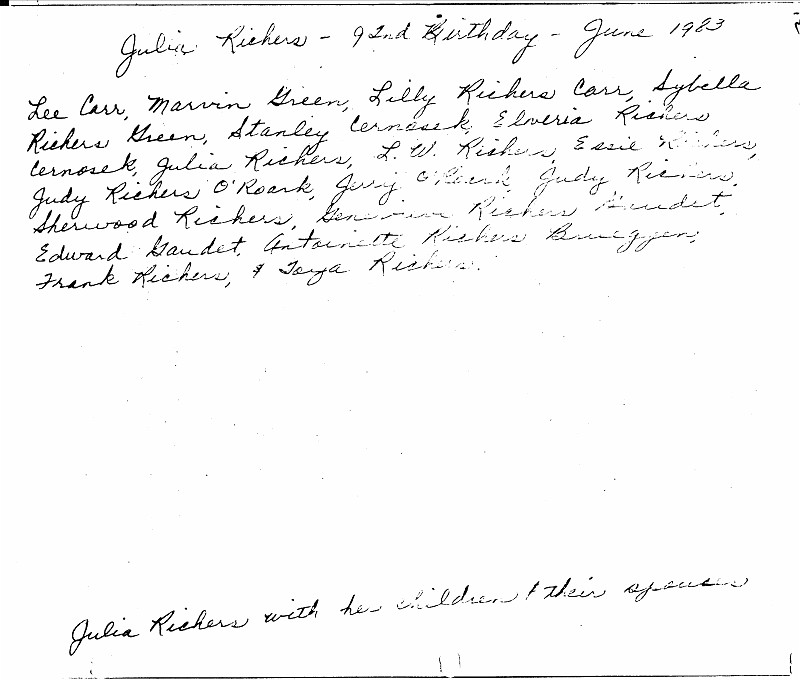 Julia Richers - 92nd Birthday - June 1983
Lee Carr, Marvin Green, Lilly Richers Carr, Sybella
Richers Green, Stanley Cernosek, Elveria Richers
Cernosek, Julia Richers, L. W. Richers, Essie Richers,
Judy Richers O'Roark, Jerry O'Roark, Judy Richers,
Sherwood Richers, Genevieve Richers Gaudet,
Edward Gaudet, Antoinette Richers Brueggen,
Frank Richers, & Toya Richers.
Julia Richers with he children & their spouses